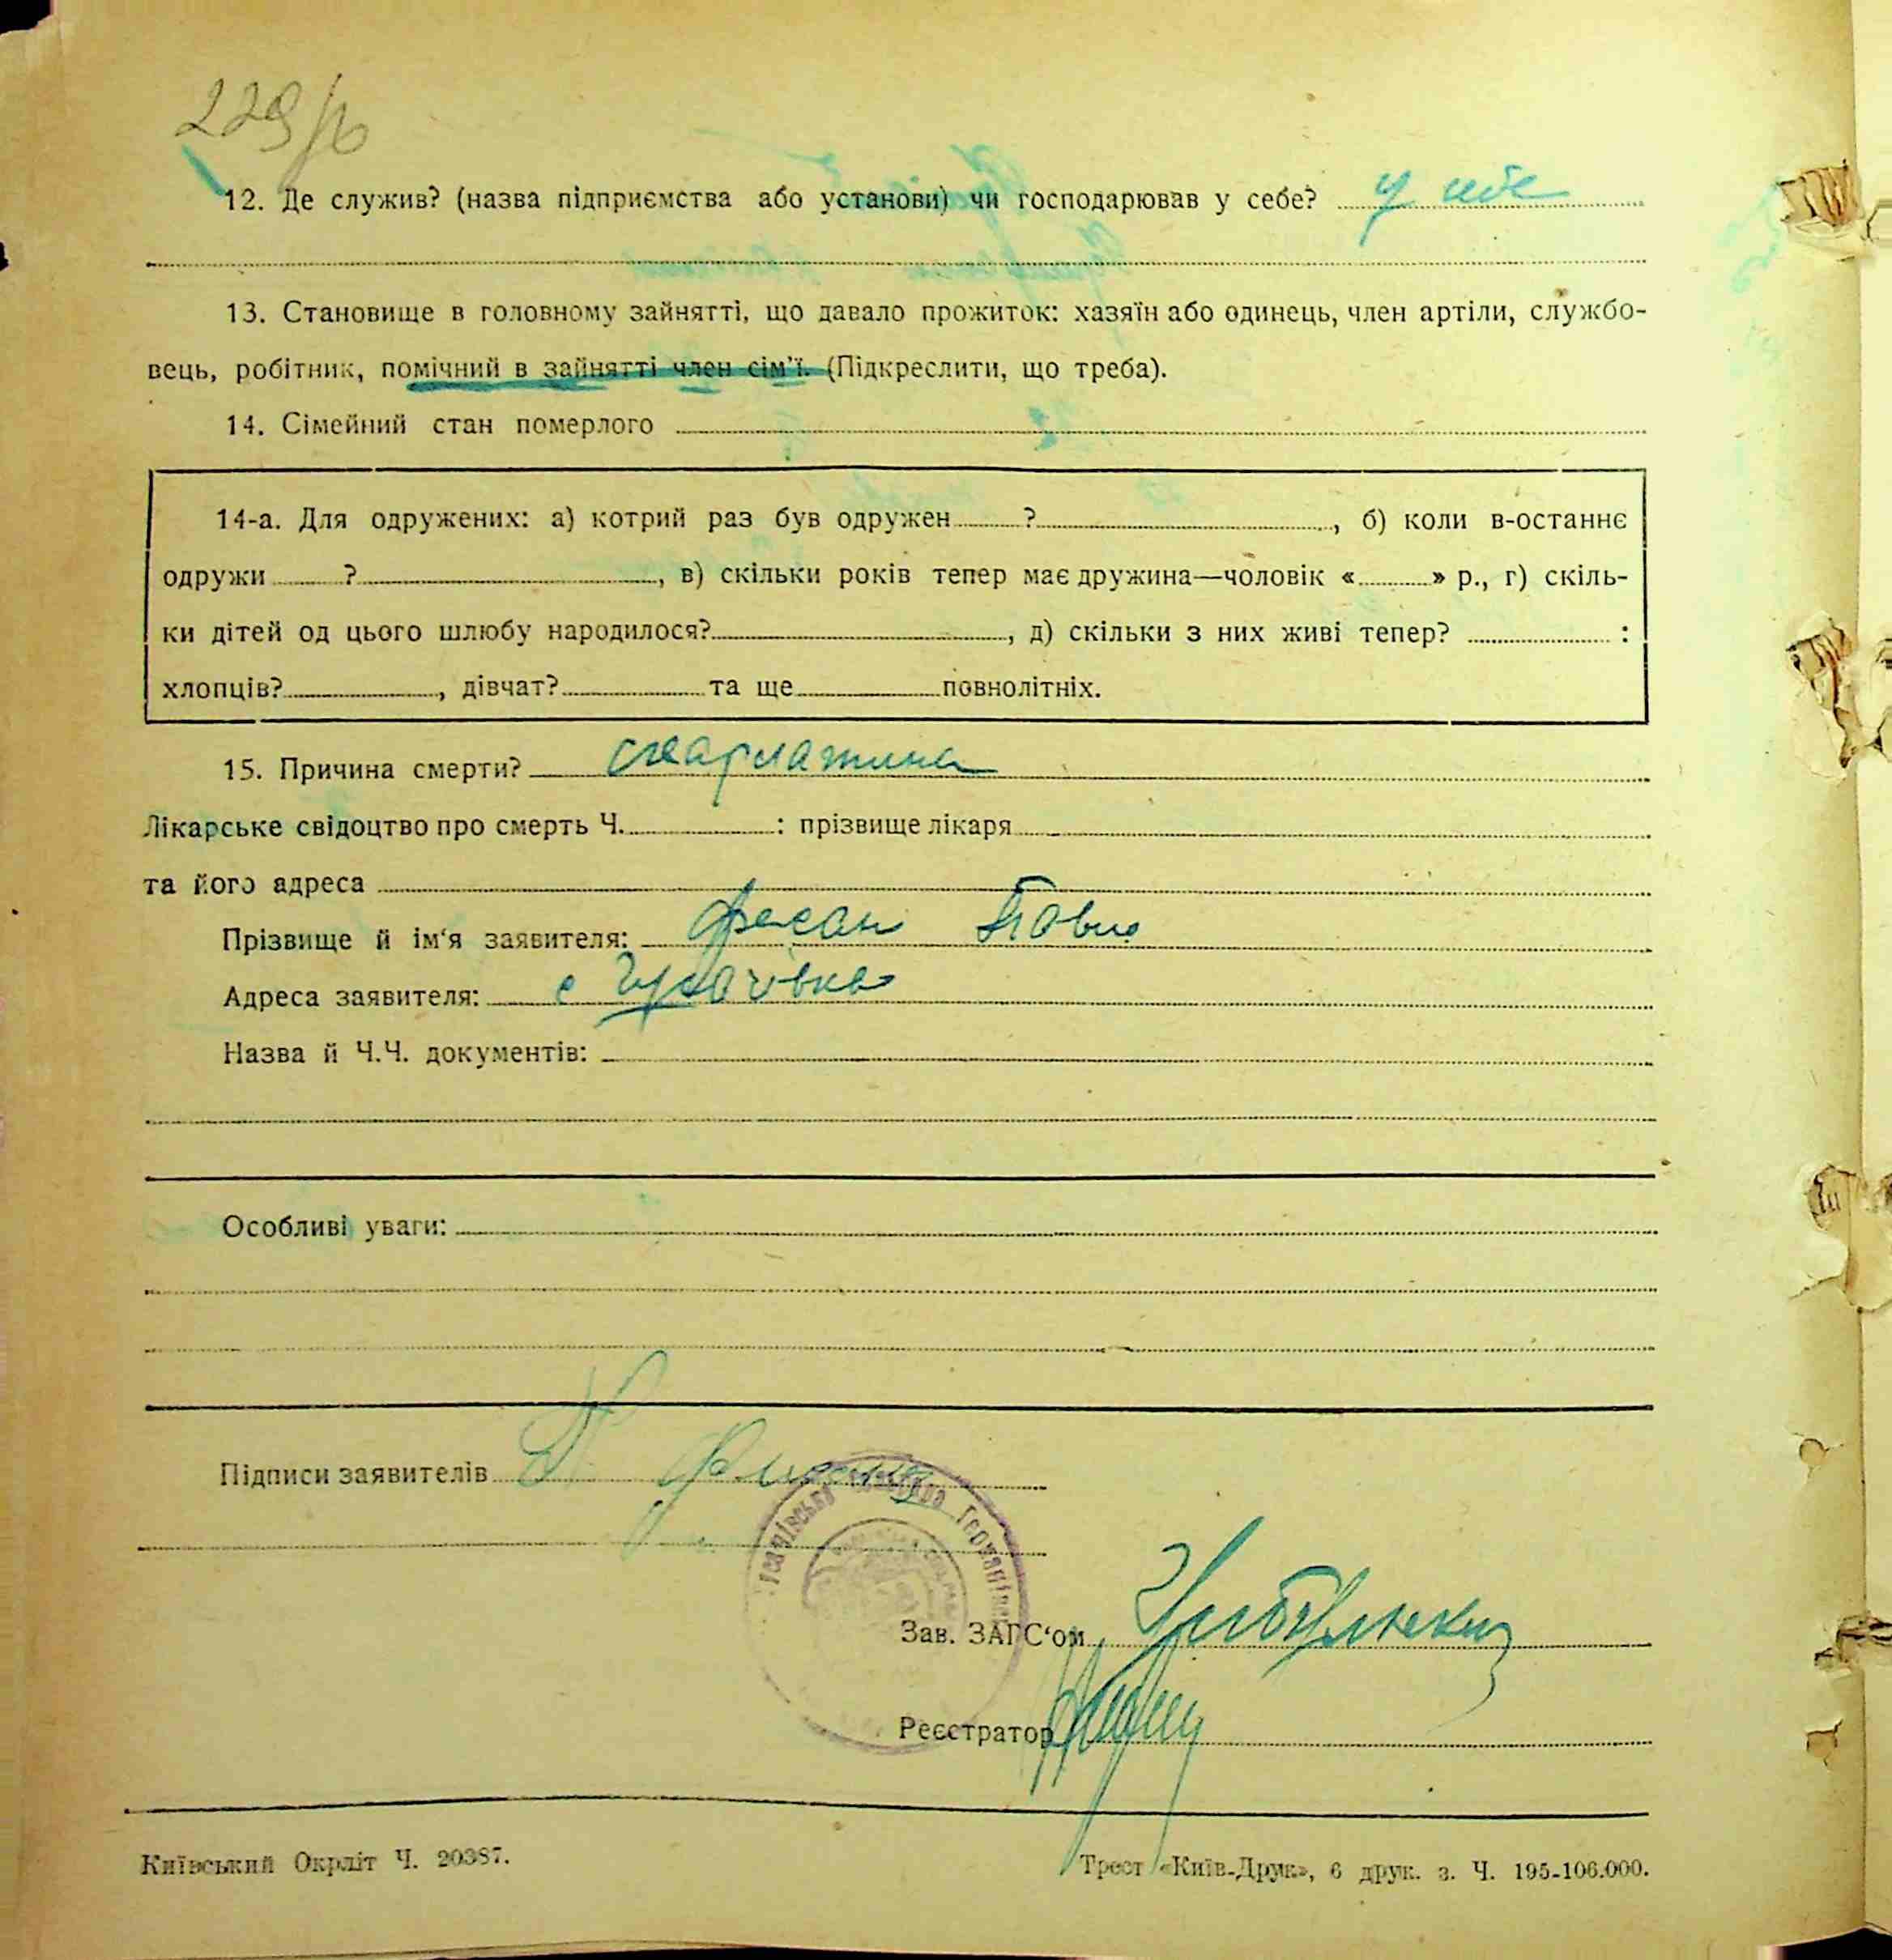 12. Де служив? (назва підприємства або установи) чи господарював у себе? у себе
13. Становище в головному зайнятті, що давало прожиток: хазяїн або одинець, член артіли, службо-
вець, робітник, помічний в зайнятті член сім'ї. (Підкреслити, що треба).
14. Сімейний стан померлого
14-а. Для одружених: а) котрий раз був одружен ? , б) коли в-останнє
одружи ? , в) скільки років тепер має дружина—чоловік « » р., г) скіль-
ки дітей од цього шлюбу народилося? , д) скільки з них живі тепер? :
хлопців? , дівчат? та ще повнолітніх.
15. Причина смерти? скарлатина
Лікарське свідоцтво про смерть Ч. : прізвище лікаря
та його адреса
Прізвище й ім'я заявителя: Павло
Адреса заявителя: с
Назва й Ч.Ч. документів:
Особливі уваги:
Підписи заявителів
Зав. ЗАГС'ом
Реєстратор
Київський Окрліт Ч. 20387.
Трест «Київ-Друк», 6 друк. з. Ч. 195-106.000.